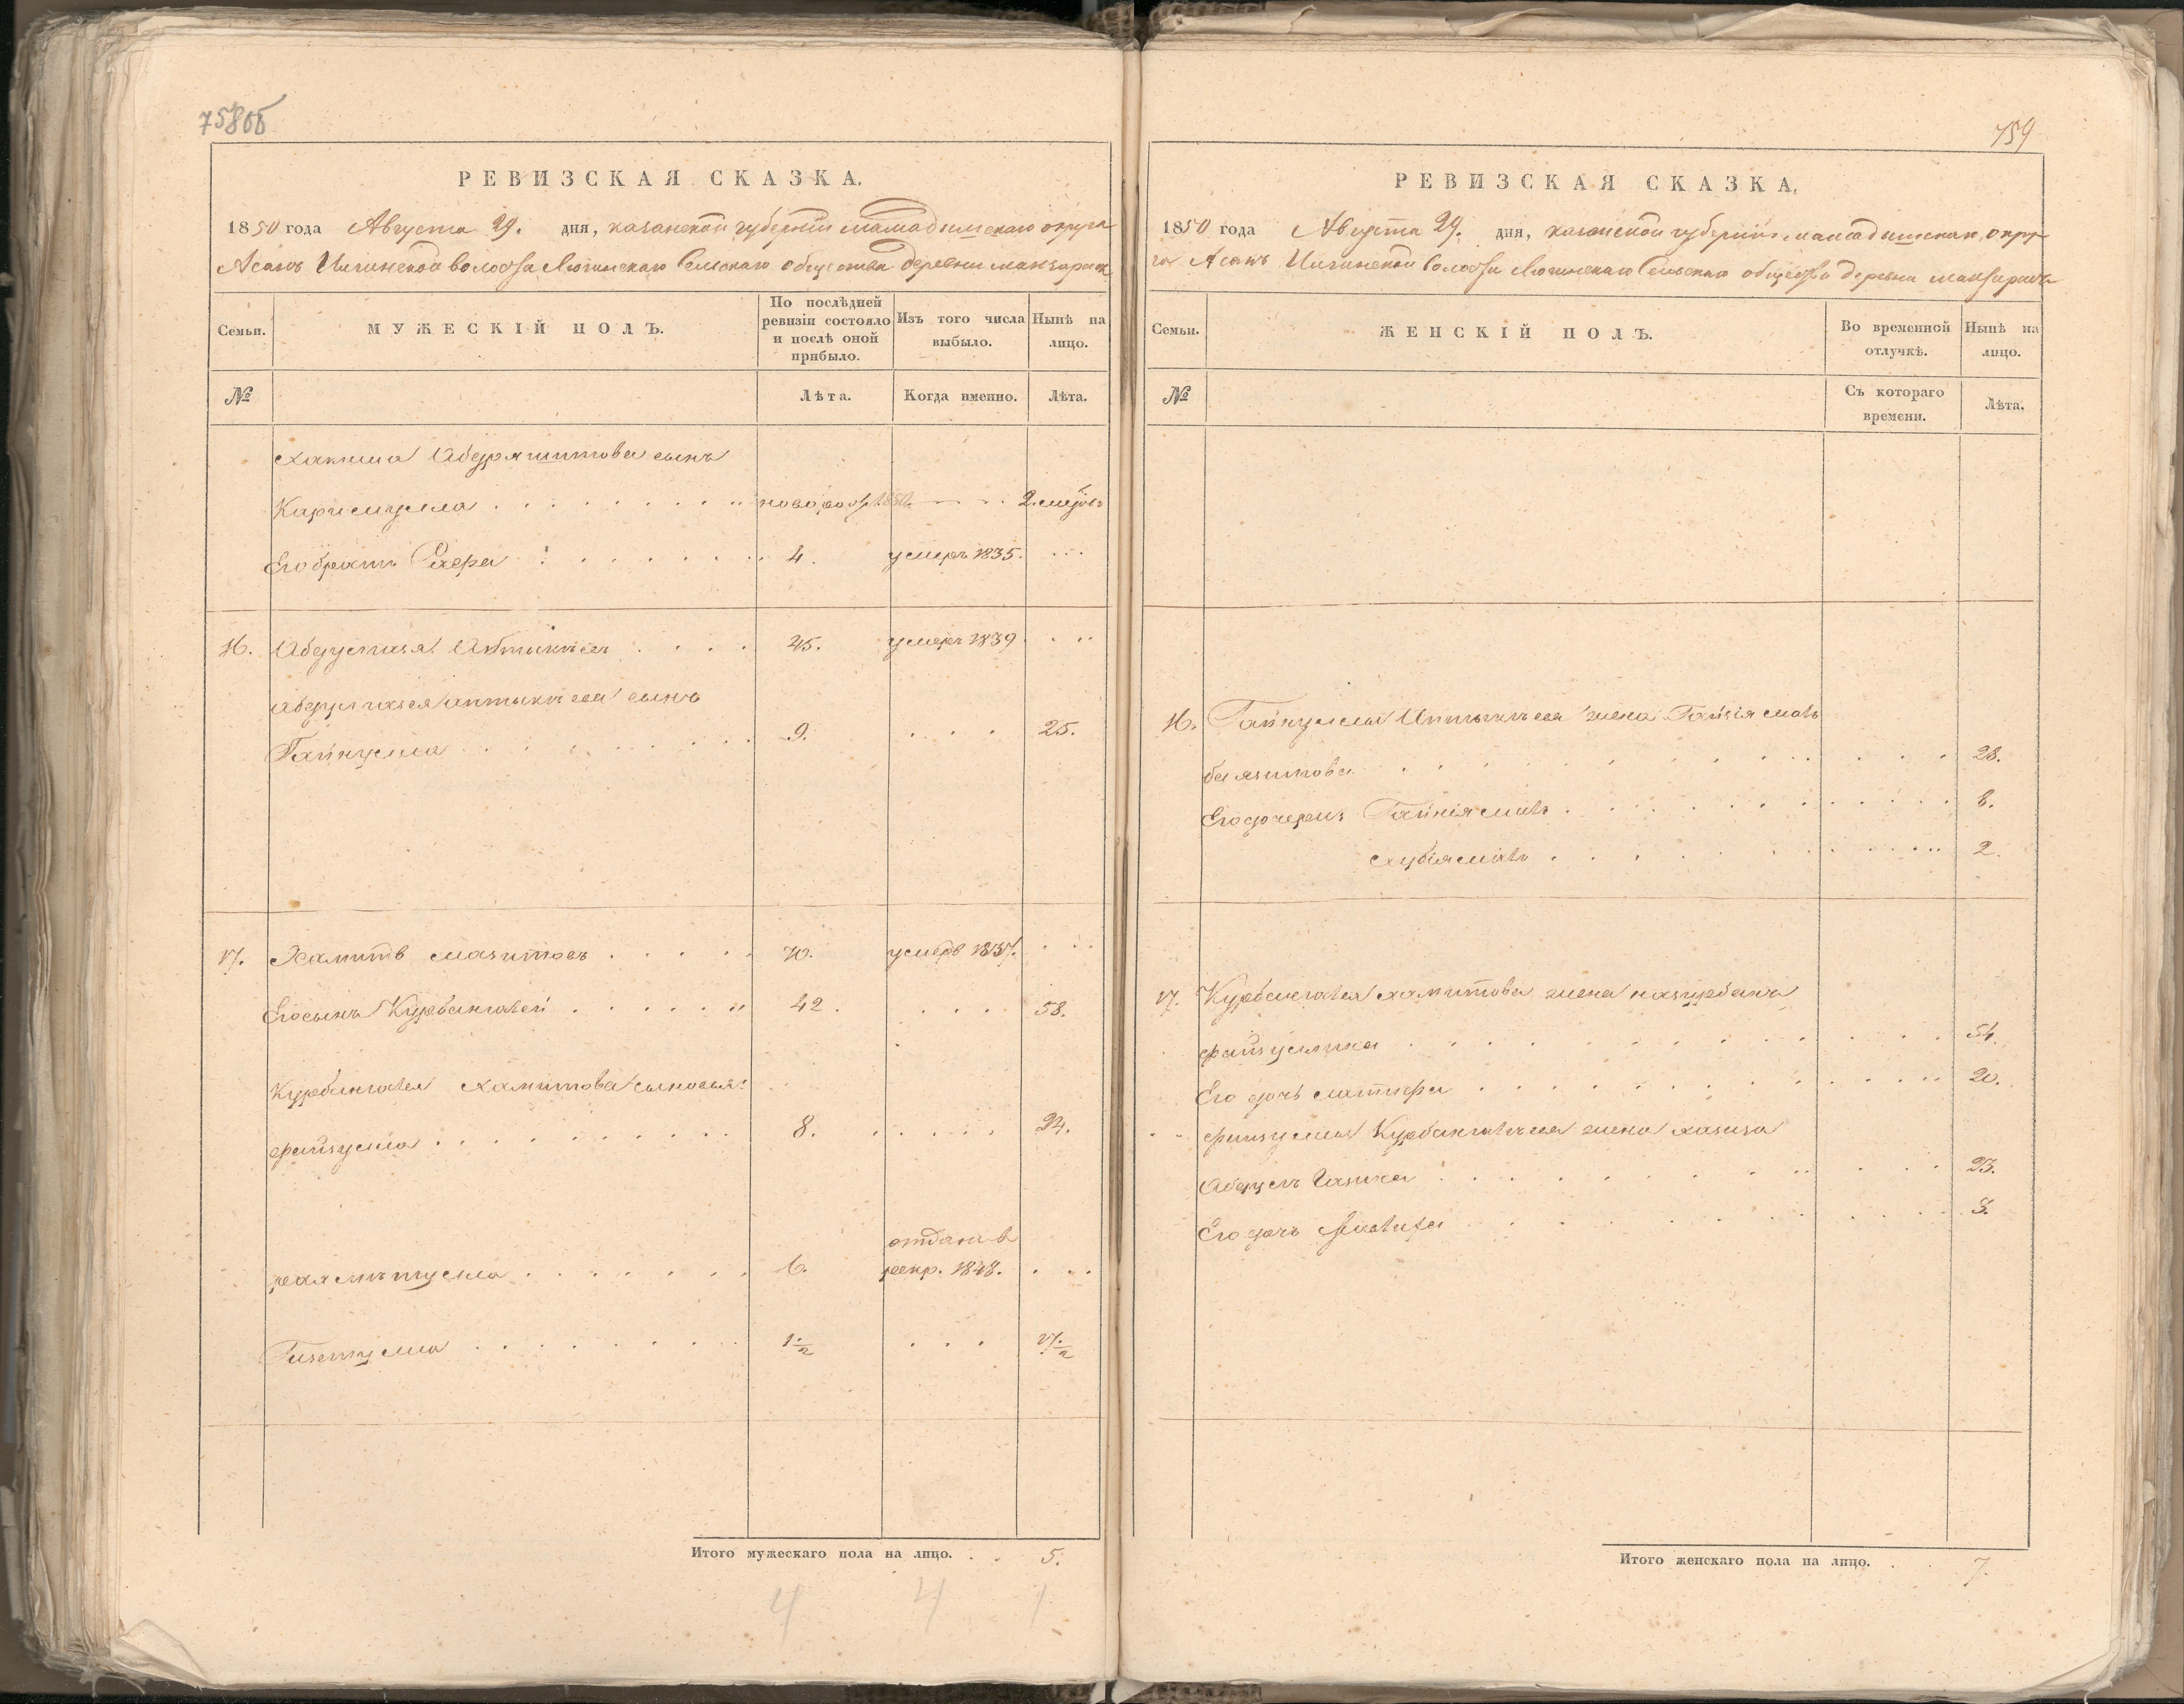 758об
РЕВИЗСКАЯ СКАЗКА.
1850 года Августа 29. дня, казанской губерніи мамадышскаго округа
Асанъ Илгинской волости Сельскаго общества деревни
Семьи.
МУЖЕСКІЙ ПОЛЪ.
По послѣдней ревизіи состояло и послѣ оной прибыло.
Изъ того числа выбыло.
Нынѣ на лицо.
№
Лѣта.
Когда именно.
Лѣта.
сынъ
Каримулла новорож 1850. 2. мѣсяц
Его братъ 4. умеръ 1835.
16. Абдулгазя Аптыкѣевъ 45. умеръ 1839
Абдулгазея Аптыкѣева сынъ
Гайнулла 9. 25.
17. Хамитъ Мазитовъ 70. умеръ 1837.
Его сынъ Курбангалей 42. 58.
Курбангалея Хамитова сыновья:
Файзулла 8. 24.
отданъ в
6. рекр. 1848.
Гизетулла 1 1/2 17 1/2
Итого мужескаго пола на лицо. 5.
4 4 1
759
РЕВИЗСКАЯ СКАЗКА.
1850 года Августа 29. дня, казанской губерніи мамадышскаго окру-
га Асанъ Илгинской волости Сельскаго общества деревни
Семьи.
ЖЕНСКІЙ ПОЛЪ.
Во временной отлучкѣ.
Нынѣ на лицо.
№
Съ котораго времени.
Лѣта.
16. Гайнуллы Аптыкѣева жена
баязитова 28.
Его дочери: 8.
2.
17. Курбангалея Хамитова жена
файзуллина 54.
Его дочь 20.
Файзуллы Курбангалѣева жена
23.
Его дочь 3.
Итого женскаго пола на лицо. 7.